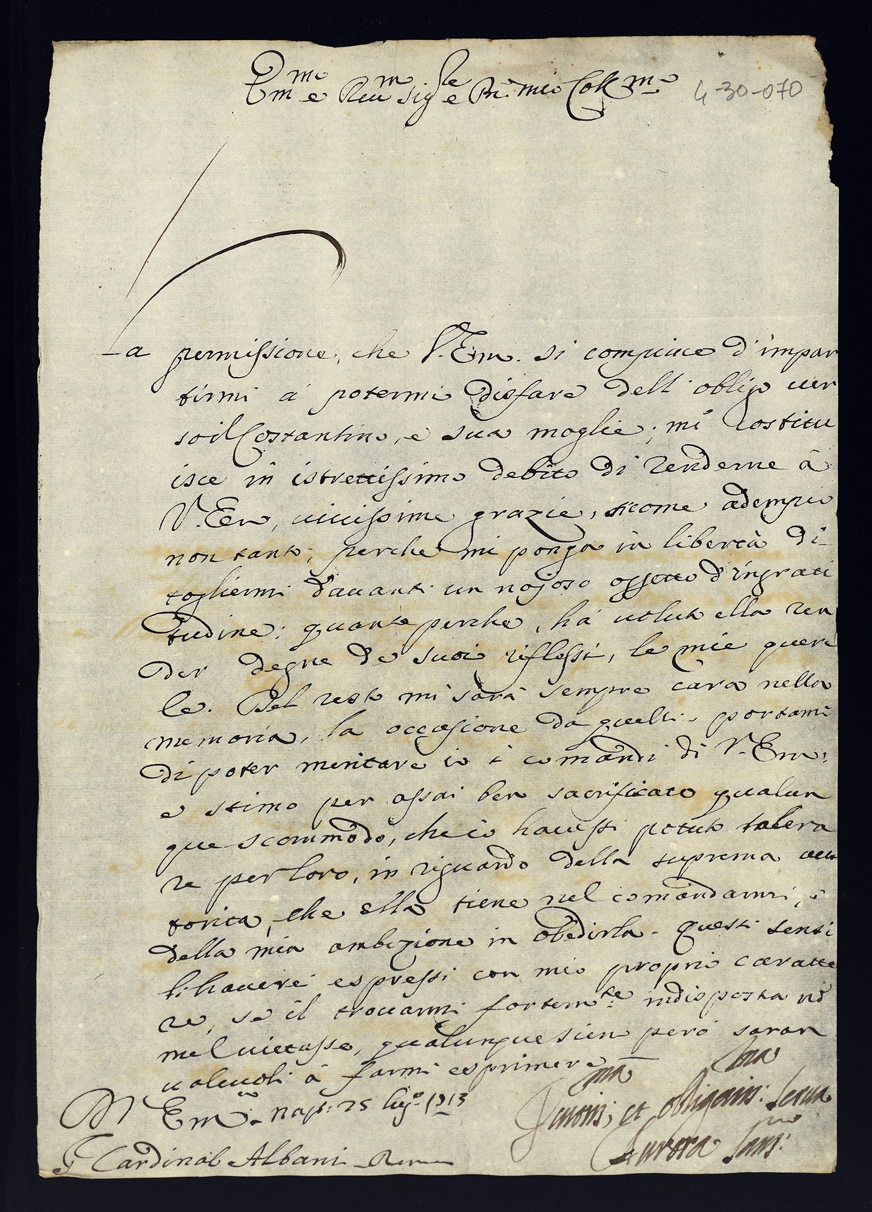 Em.mo e Rev.mo Sig.re e P.ne mio Coll.mo
4-30-070
La permissione, che V. Em. si compiace d'impar
tirmi á potermi disfare dell'obligo ver
so il Costantino, e sua moglie, mi costitu
isce in istrettissimo debito di renderne à
V. Em, vivissime grazie, sicome adempio
non tanto, perche mi ponga in libertà di
togliermi davanti un nojoso oggetto d'ingrati
tudine; quanto perche, há voluto ella ren
der degne de suoi riflessi, le mie quere
le. Del resto mi sarà sempre cara nella
memoria, la occasione da quelli portami
di poter meritare io i comandi di V. Em:
e stimo per assai ben sacrificato qualun
que scommodo, che io havessi potuto tolera
re per loro, in riguardo della suprema au
torità, che ella tiene nel comandarmi, e
della mia ambizione in obedirla. Questi sensi
li haverei espressi con mio proprio caratte
re, se il trovarmi fortem.te indisposta nō
mel vietasse, qualunque sien però saran
valevoli à farmi esprimere
Di V. Em.a Nap: 25 lug.o 1713
Devotis.ma et obligatis.ma Serva
Aurora San:
S.r Cardinal Albani Roma